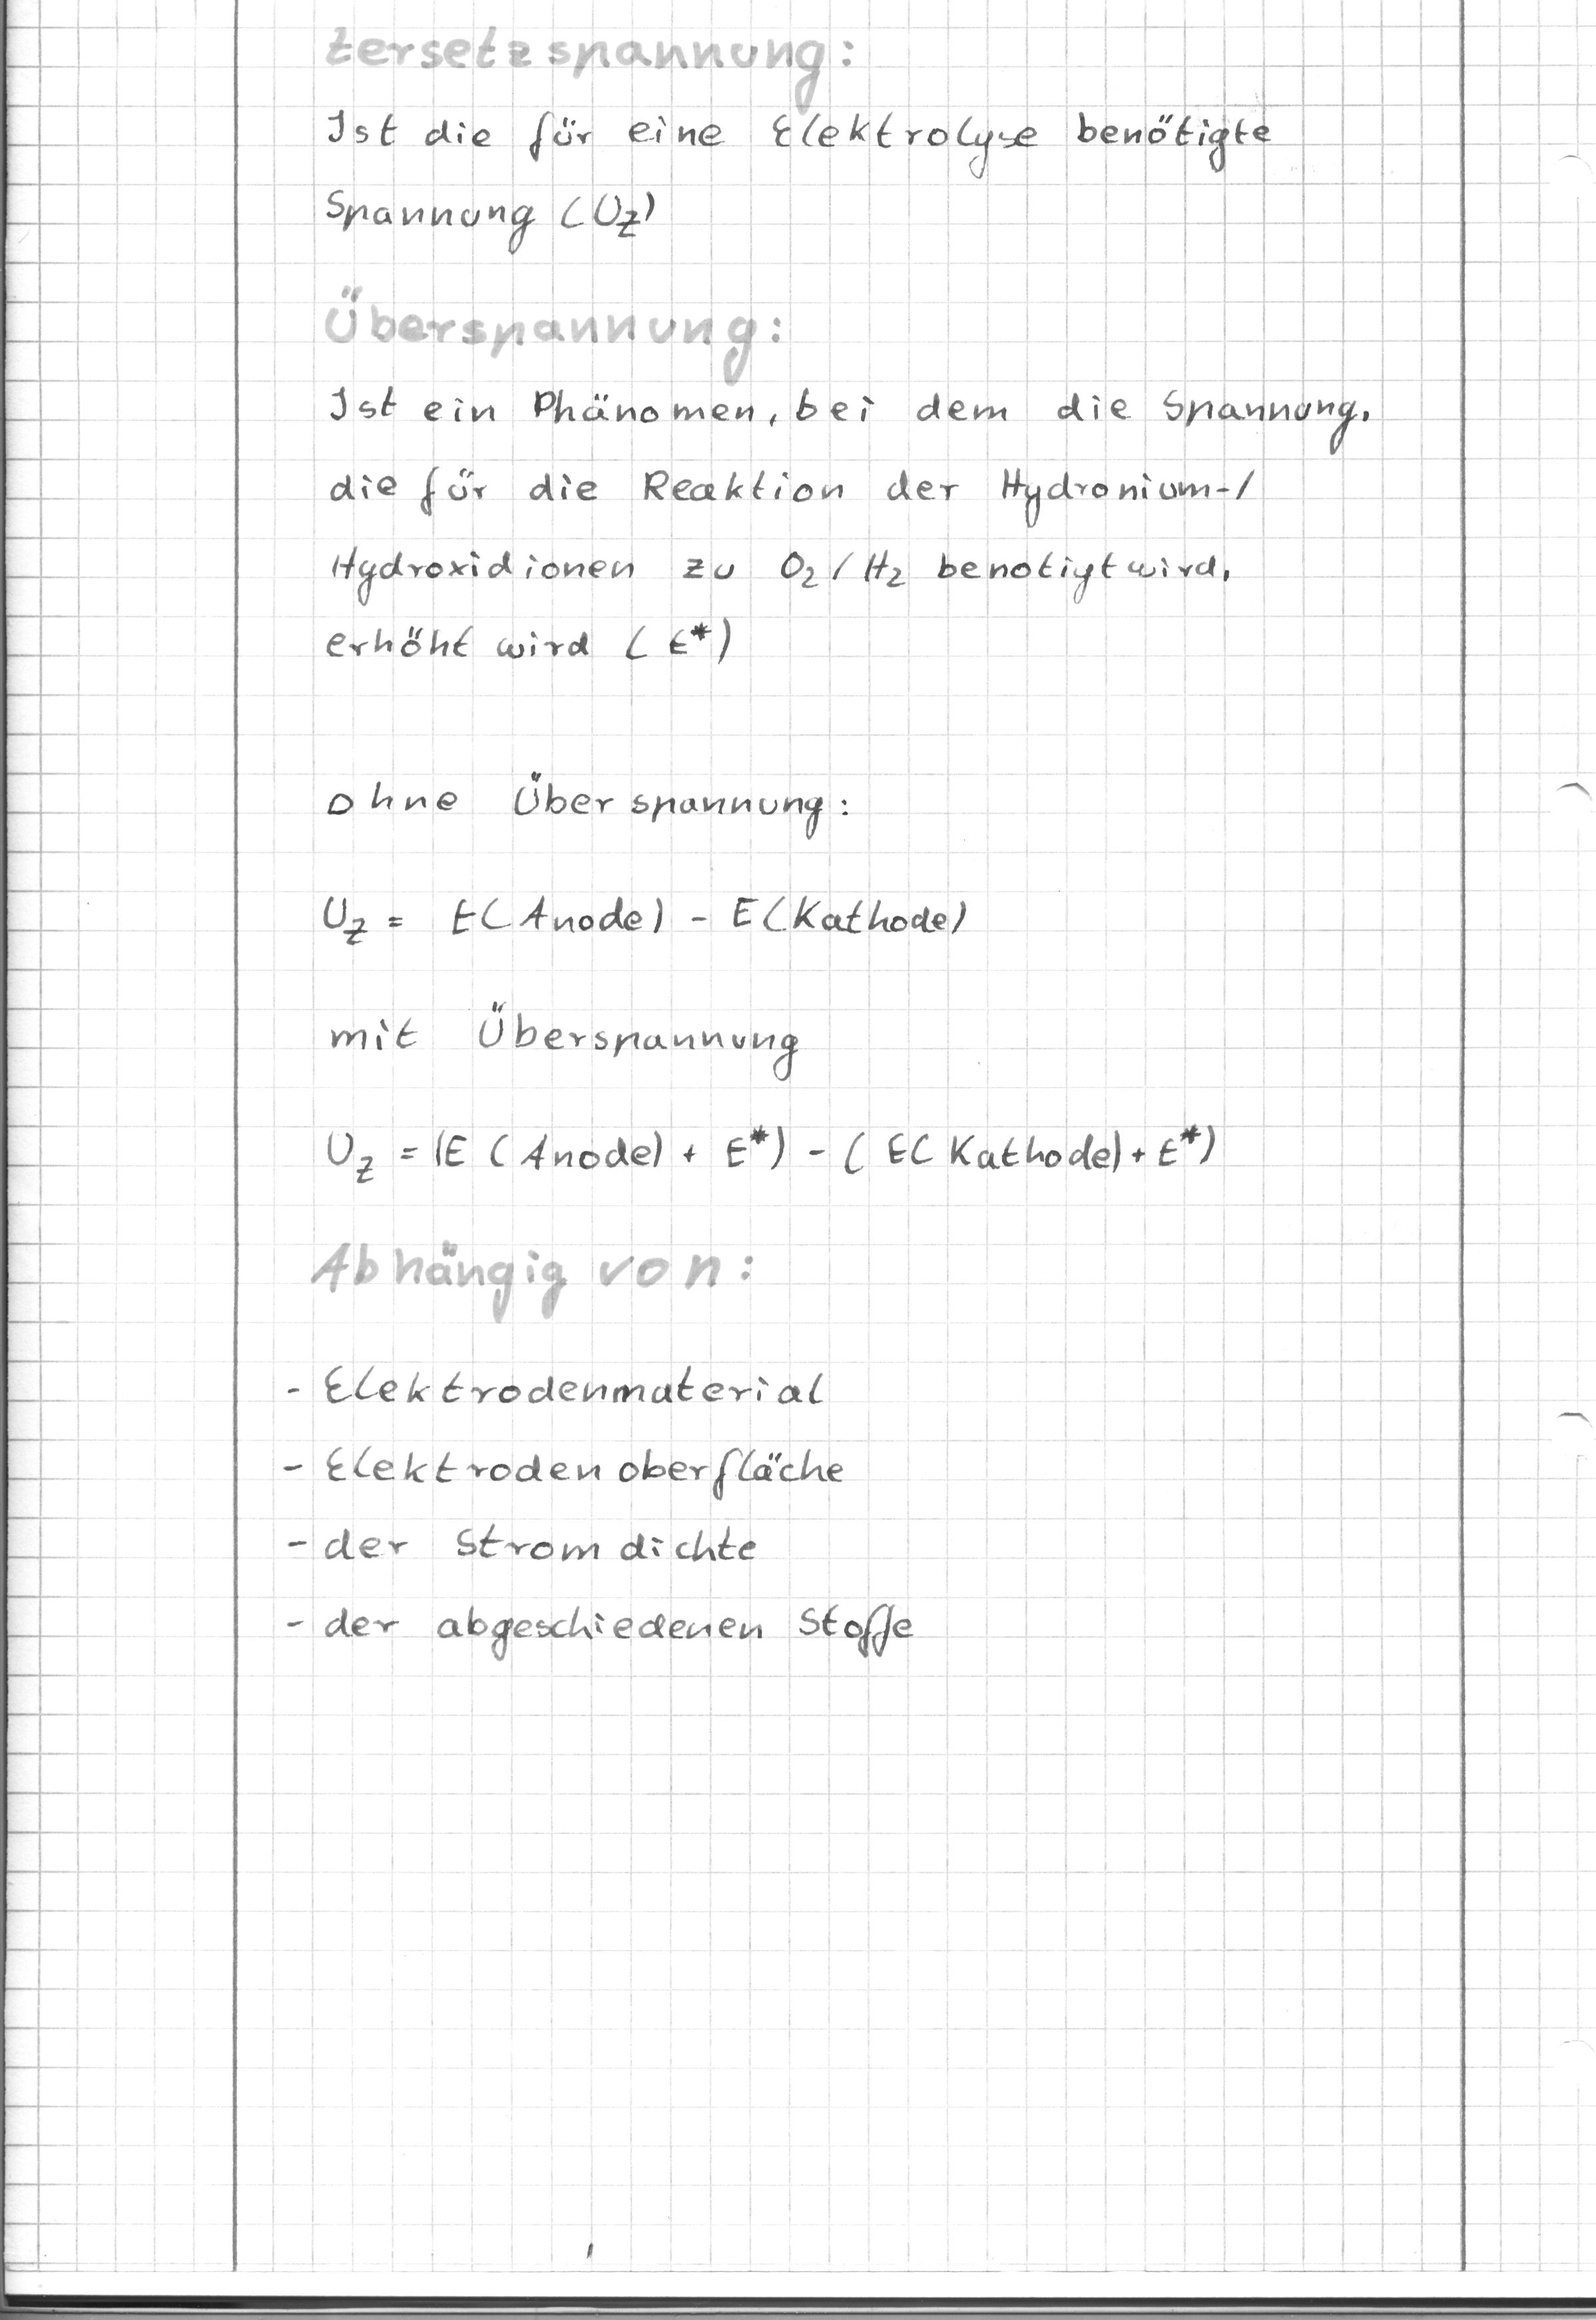 Zersetzspannung:
Ist die für eine Elektrolyse benötigte
Spannung (U_z)
Überspannung:
Ist ein Phänomen, bei dem die Spannung,
die für die Reaktion der Hydronium-/
Hydroxidionen zu O₂/H₂ benotigt wird,
erhöht wird (E*)
ohne Überspannung:
U_z = E(Anode) - E(Kathode)
mit Überspannung
U_z = (E(Anode) + E*) - (E(Kathode) + E*)
Abhängig von:
- Elektrodenmaterial
- Elektrodenoberfläche
- der Stromdichte
- der abgeschiedenen Stoffe